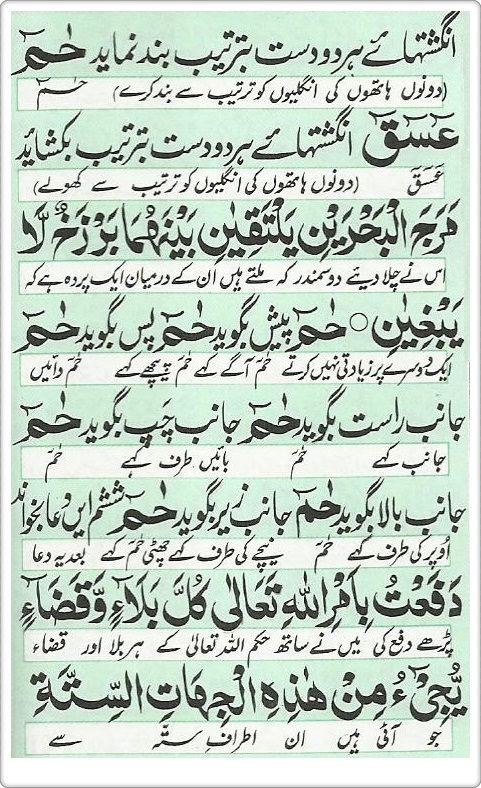 انگشتہائے ہر دو دست بترتیب بند نماید حٰمٓ
(دونوں ہاتھوں کی انگلیوں کو ترتیب سے بند کرے) حٰمٓ
عٓسٓقٓ انگشتہائے ہر دو دست بترتیب بکشاید
عٓسٓقٓ (دونوں ہاتھوں کی انگلیوں کو ترتیب سے کھولے)
مَرَجَ الْبَحْرَيْنِ يَلْتَقِيٰنِ بَيْنَهُمَا بَرْزَخٌ لَّا
اس نے چلا دیئے دو سمندر کہ ملتے ہیں ان کے درمیان ایک پردہ ہے کہ
يَبْغِيٰنِ ○ حٰمٓ پیش بگوید حٰمٓ پس بگوید حٰمٓ
ایک دوسرے پر زیادتی نہیں کرتے حٰمٓ آگے کہے حٰمٓ پیچھے کہے حٰمٓ دائیں
جانب راست بگوید حٰمٓ جانب چپ بگوید حٰمٓ
جانب کہے حٰمٓ بائیں طرف کہے حٰمٓ
جانب بالا بگوید حٰمٓ جانب زیر بگوید حٰمٓ ششم این دعا بخواند
اُوپر کی طرف کہے حٰمٓ نیچے کی طرف کہے چھٹی حٰمٓ کہے بعد یہ دعا
دَفَعْتُ بِاَمْرِ اللّٰهِ تَعَالٰى كُلَّ بَلَآءٍ وَّقَضَآءٍ
پڑھے دفع کی میں نے ساتھ حکم اللہ تعالیٰ کے ہر بلا اور قضاء
يُّجِيْٓءُ مِنْ هٰذِهِ الْجِهَاتِ السِّتَّةِ
جو آتی ہیں ان اطرافِ ستّہ سے